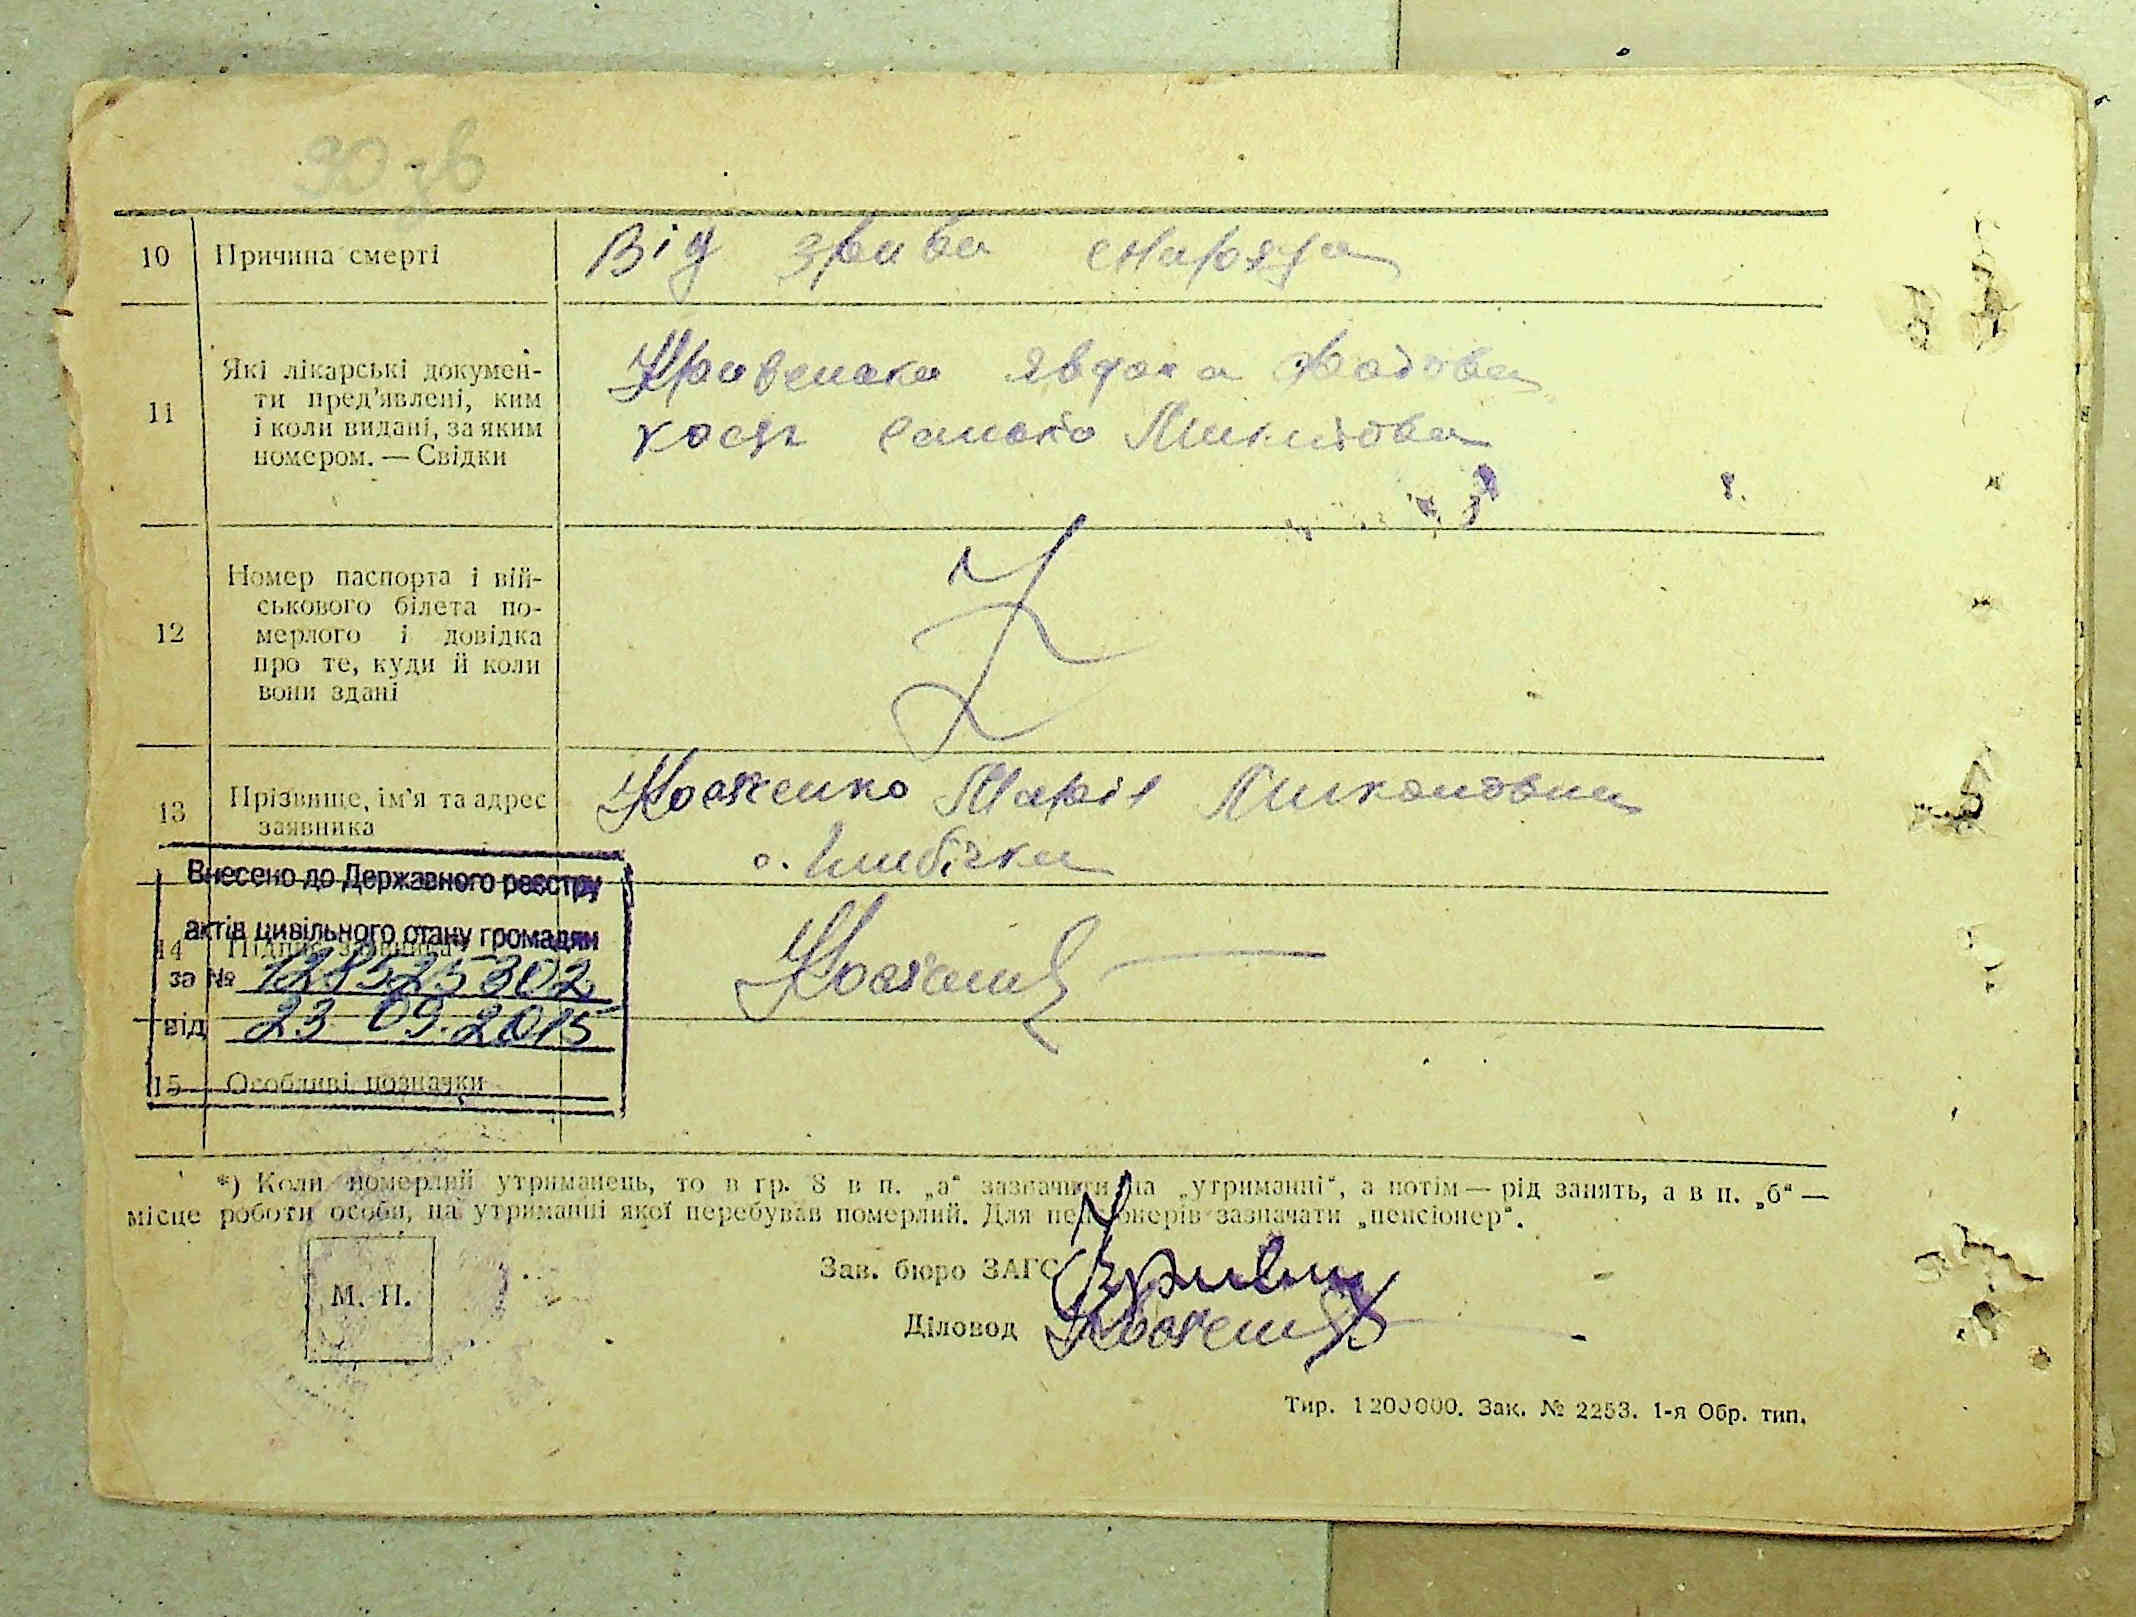 90 зв
10 Причина смерті Від зрива снаряда
11 Які лікарські докумен-
ти пред'явлені, ким
і коли видані, за яким
номером. — Свідки
Явдоха
12 Номер паспорта і вій-
ськового білета по-
мерлого і довідка
про те, куди й коли
вони здані
13 Прізвище, ім'я та адрес
заявника
Марія
с.
Внесено до Державного реєстру
актів цивільного стану громадян
за № 128525302
від 23 09.2015
14 Підпис заявника
15 Особливі позначки
*) Коли померлий утриманець, то в гр. 8 в п. „а“ зазначити на „утриманні“, а потім — рід занять, а в п. „б“ —
місце роботи особи, на утриманні якої перебував померлий. Для пенсіонерів зазначати „пенсіонер“.
М. П.
Зав. бюро ЗАГС
Діловод
Тир. 1200000. Зак. № 2253. 1-я Обр. тип.